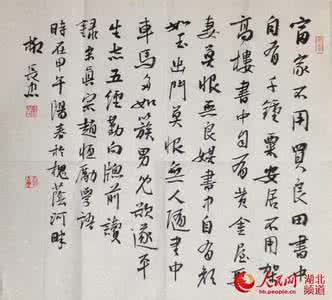 富家不用買良田書中
自有千鍾粟安居不用架
高樓書中自有黄金屋取
妻莫恨无良媒書中自有顏
如玉出門莫恨無人隨書中
車馬多如簇男兒欲遂平
生志五經勤向牕前讀
録宋真宗趙恒勵學語
時在甲午陽春於槐蔭河畔
人民网 湖北频道